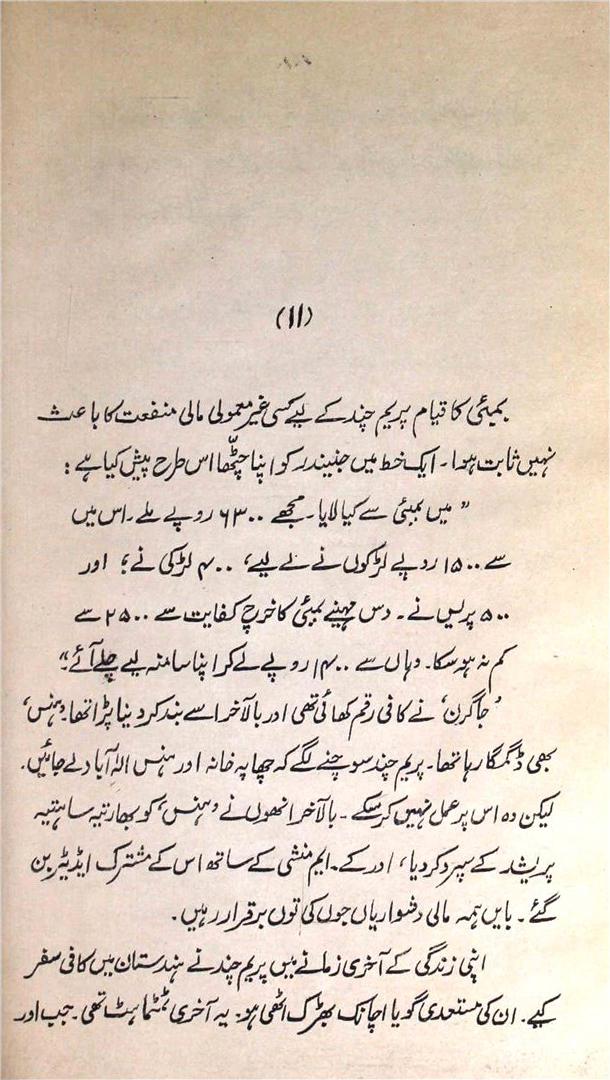 (۱۱)
بمبئی کا قیام پریم چند کے لیے کسی غیر معمولی مالی منفعت کا باعث
نہیں ثابت ہوا۔ ایک خط میں جنیندر کو اپنا چٹّھا اس طرح پیش کیا ہے :
" میں بمبئی سے کیا لایا۔ مجھے ۶۳۰۰ روپے ملے۔ اس میں
سے ۱۵۰۰ روپے لڑکوں نے لے لیے، ۴۰۰ لڑکی نے؛ اور
۵۰۰ پریس نے۔ دس مہینے بمبئی کا خرچ کفایت سے ۲۵۰۰ سے
کم نہ ہو سکا۔ وہاں سے ۱۴۰۰ روپے لے کر اپنا سا منہ لیے چلے آئے۔"
'جاگرن' نے کافی رقم کھائی تھی اور بالآخر اسے بند کر دینا پڑا تھا۔ 'ہنس'
بھی ڈگمگا رہا تھا۔ پریم چند سوچنے لگے کہ چھاپہ خانہ اور ہنس الہٰ آباد لے جائیں۔
لیکن وہ اس پر عمل نہیں کر سکے۔ بالآخر انھوں نے 'ہنس' کو بھارتیہ ساہتیہ
پریشد کے سپرد کر دیا، اور کے۔ ایم منشی کے ساتھ اس کے مشترک ایڈیٹر بن
گئے۔ بایں ہمہ مالی دشواریاں جوں کی توں برقرار رہیں۔
اپنی زندگی کے آخری زمانے میں پریم چند نے ہندستان میں کافی سفر
کیے۔ ان کی مستعدی گویا اچانک بھڑک اٹھی ہو۔ یہ آخری ٹمٹماہٹ تھی۔ جب اور